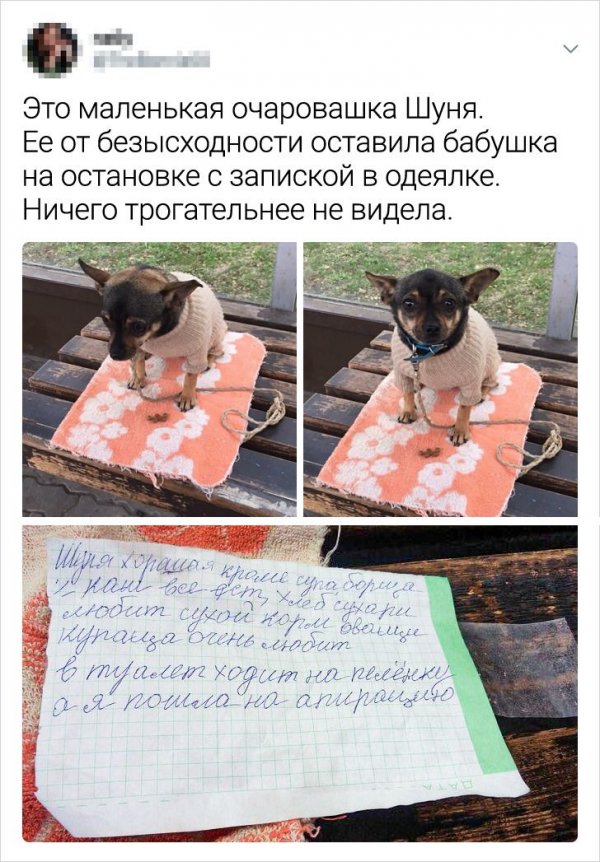 Это маленькая очаровашка Шуня.
Ее от безысходности оставила бабушка
на остановке с запиской в одеялке.
Ничего трогательнее не видела.
Шуня хорошая кроме супа борща
и каш все ест, хлеб сухари
любит сухой корм овощи
купаица очень любит
в туалет ходит на пелёнку
а я пошла на апирацию
ДАТА